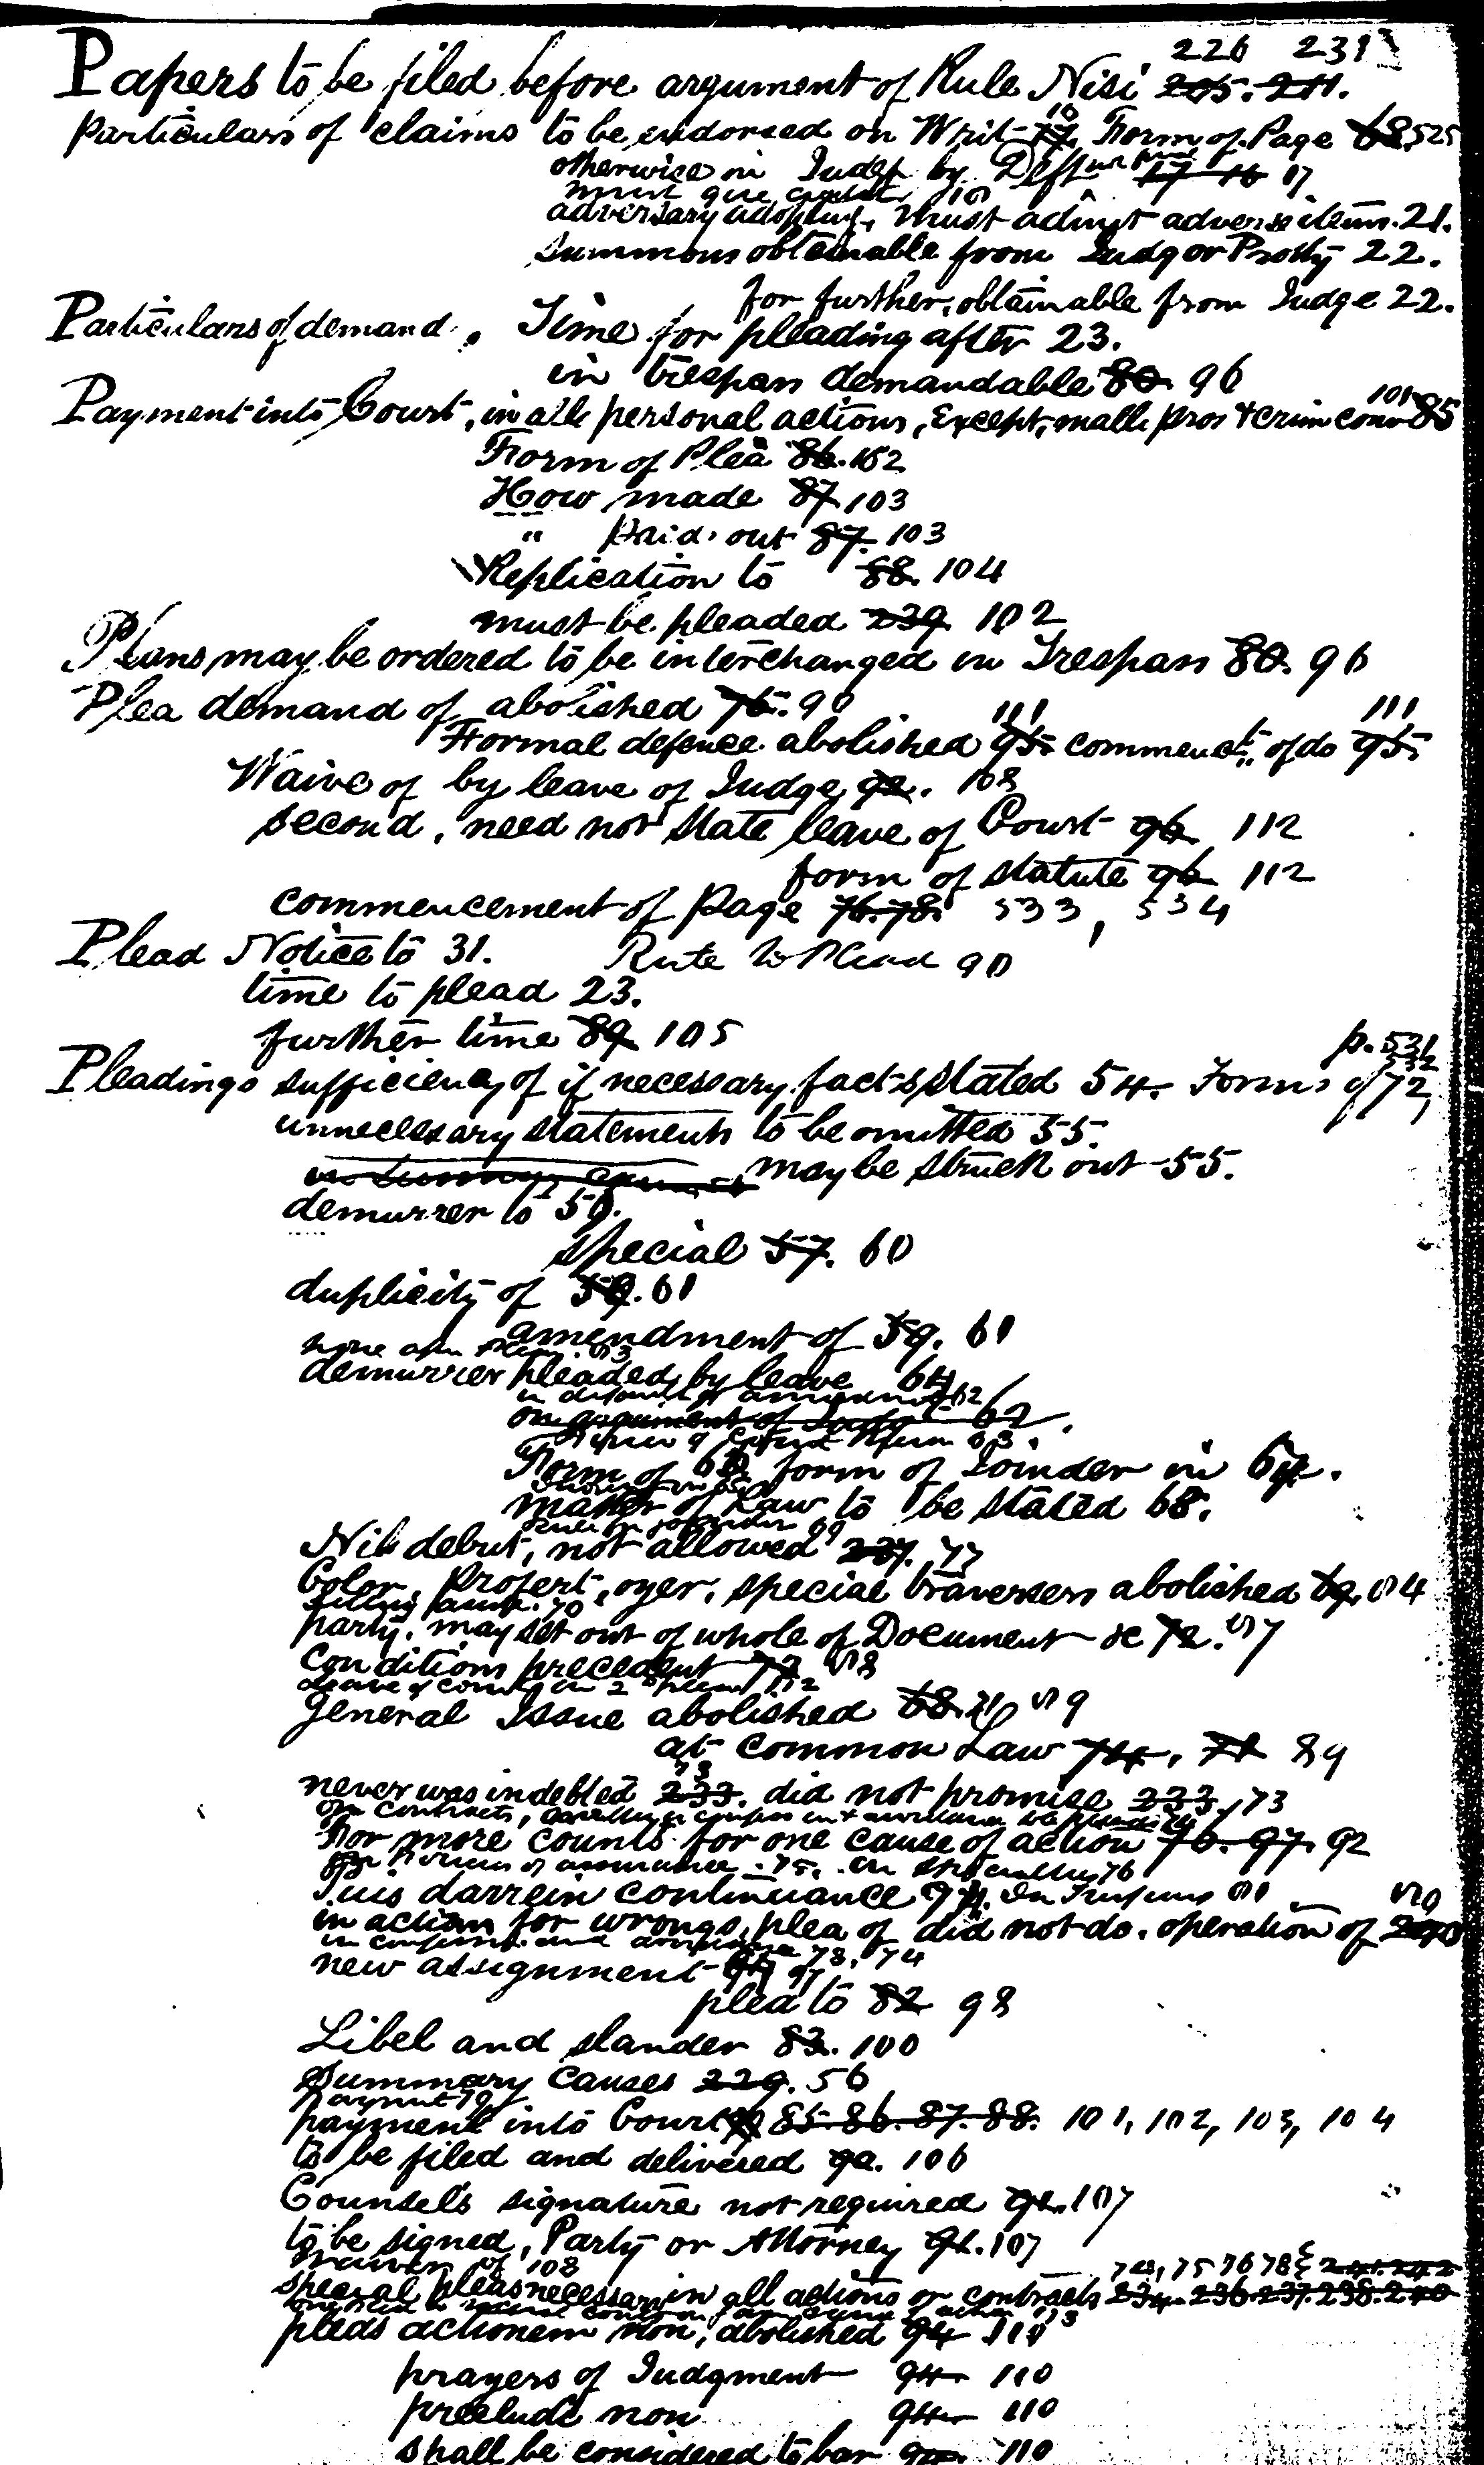 226 231
Papers to be filed before argument of Rule Nisi 205. 211.
Particulars of claims to be endorsed on Writ 17 18 Form of Page 68 525
otherwise in Indep by Deft 17 16 17
must give credit
adversary adopting, must admit adverse items. 21.
summons obtainable from Judg or Prothy 22.
for further, obtainable from Judge 22.
Particulars of demand, Time for pleading after 23.
in trespass demandable 80. 96
Payment into Court, in all personal actions, Except, mall: pros & crim conv 85 101
Form of Plea 86. 102
How made 87. 103
" Paid out 87. 103
Replication to 88. 104
must be pleaded 239 102
Plans may be ordered to be interchanged in Trespass 80. 96
Plea demand of abolished 76. 90
Formal defence abolished 95 111 commencet. of do 95 111
Waive of by leave of Judge 92. 108
second, need not state leave of Court 96 112
form of statute 96 112
commencement of Page 76. 78. 533, 534
Plead Notice to 31. Rule to Plead 90
time to plead 23.
further time 89 105
p. 531
532
Pleadings sufficiency of if necessary facts stated 54. Forms of 72,
unnecessary statements to be omitted 55.
may be struck out 55.
demurrer to 59.
special 57. 60
duplicity of 59. 61
amendment of 59. 61
none after
demurrer pleaded by leave 64
in default of amendment 62
on argument of 62.
Form of form of Joinder in 64.
matter of Law to be stated 68.
Nil debut, not allowed 237. 77
Color, Profert, oyer, special traverses abolished 69. 64
party, may set out of whole of Document &c 72. 67
Conditions precedent 72 68
leave of court in 2d plea 112
General Issue abolished 68. 69
at Common Law 74, 71 89
never was indebted 233. 73 did not promise 233. 73
on contracts,
For more counts for one cause of action 76. 97. 92
75. in specialties 76
Puis darrein continuance 94.
in action for wrongs, plea of did not do. operation of 240
78. 74
new assignment 97
plea to 82 98
Libel and slander 83. 100
Summary Causes 229. 56
payment into Court 85. 86. 87. 88. 101, 102, 103, 104
to be filed and delivered 90. 106
Counsels signature not required 91. 107
to be signed, Party or Attorney 91. 107
Waiver of 108
special pleas necessary in all actions on contracts 234. 236. 237. 238. 240
pleas actionem non, abolished 94 110
prayers of Judgment 94 110
preclude non 94 110
shall be considered to bar 94. 110